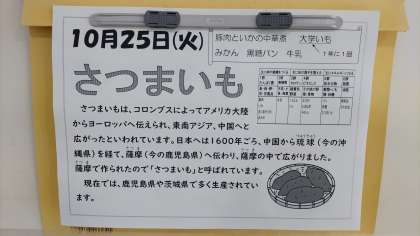 10月25日(火)
豚肉といかの中華煮　大学いも
みかん　黒糖パン　牛乳
1年に1回
さつまいも
さつまいもは、コロンブスによってアメリカ大陸
からヨーロッパへ伝えられ、東南アジア、中国へと
広がったといわれています。日本へは1600年ごろ、中国から琉球(今の沖
縄県)を経て、薩摩(今の鹿児島県)へ伝わり、薩摩の中で広がりました。
薩摩で作られたので「さつまいも」と呼ばれています。
現在では、鹿児島県や茨城県で多く生産されてい
ます。